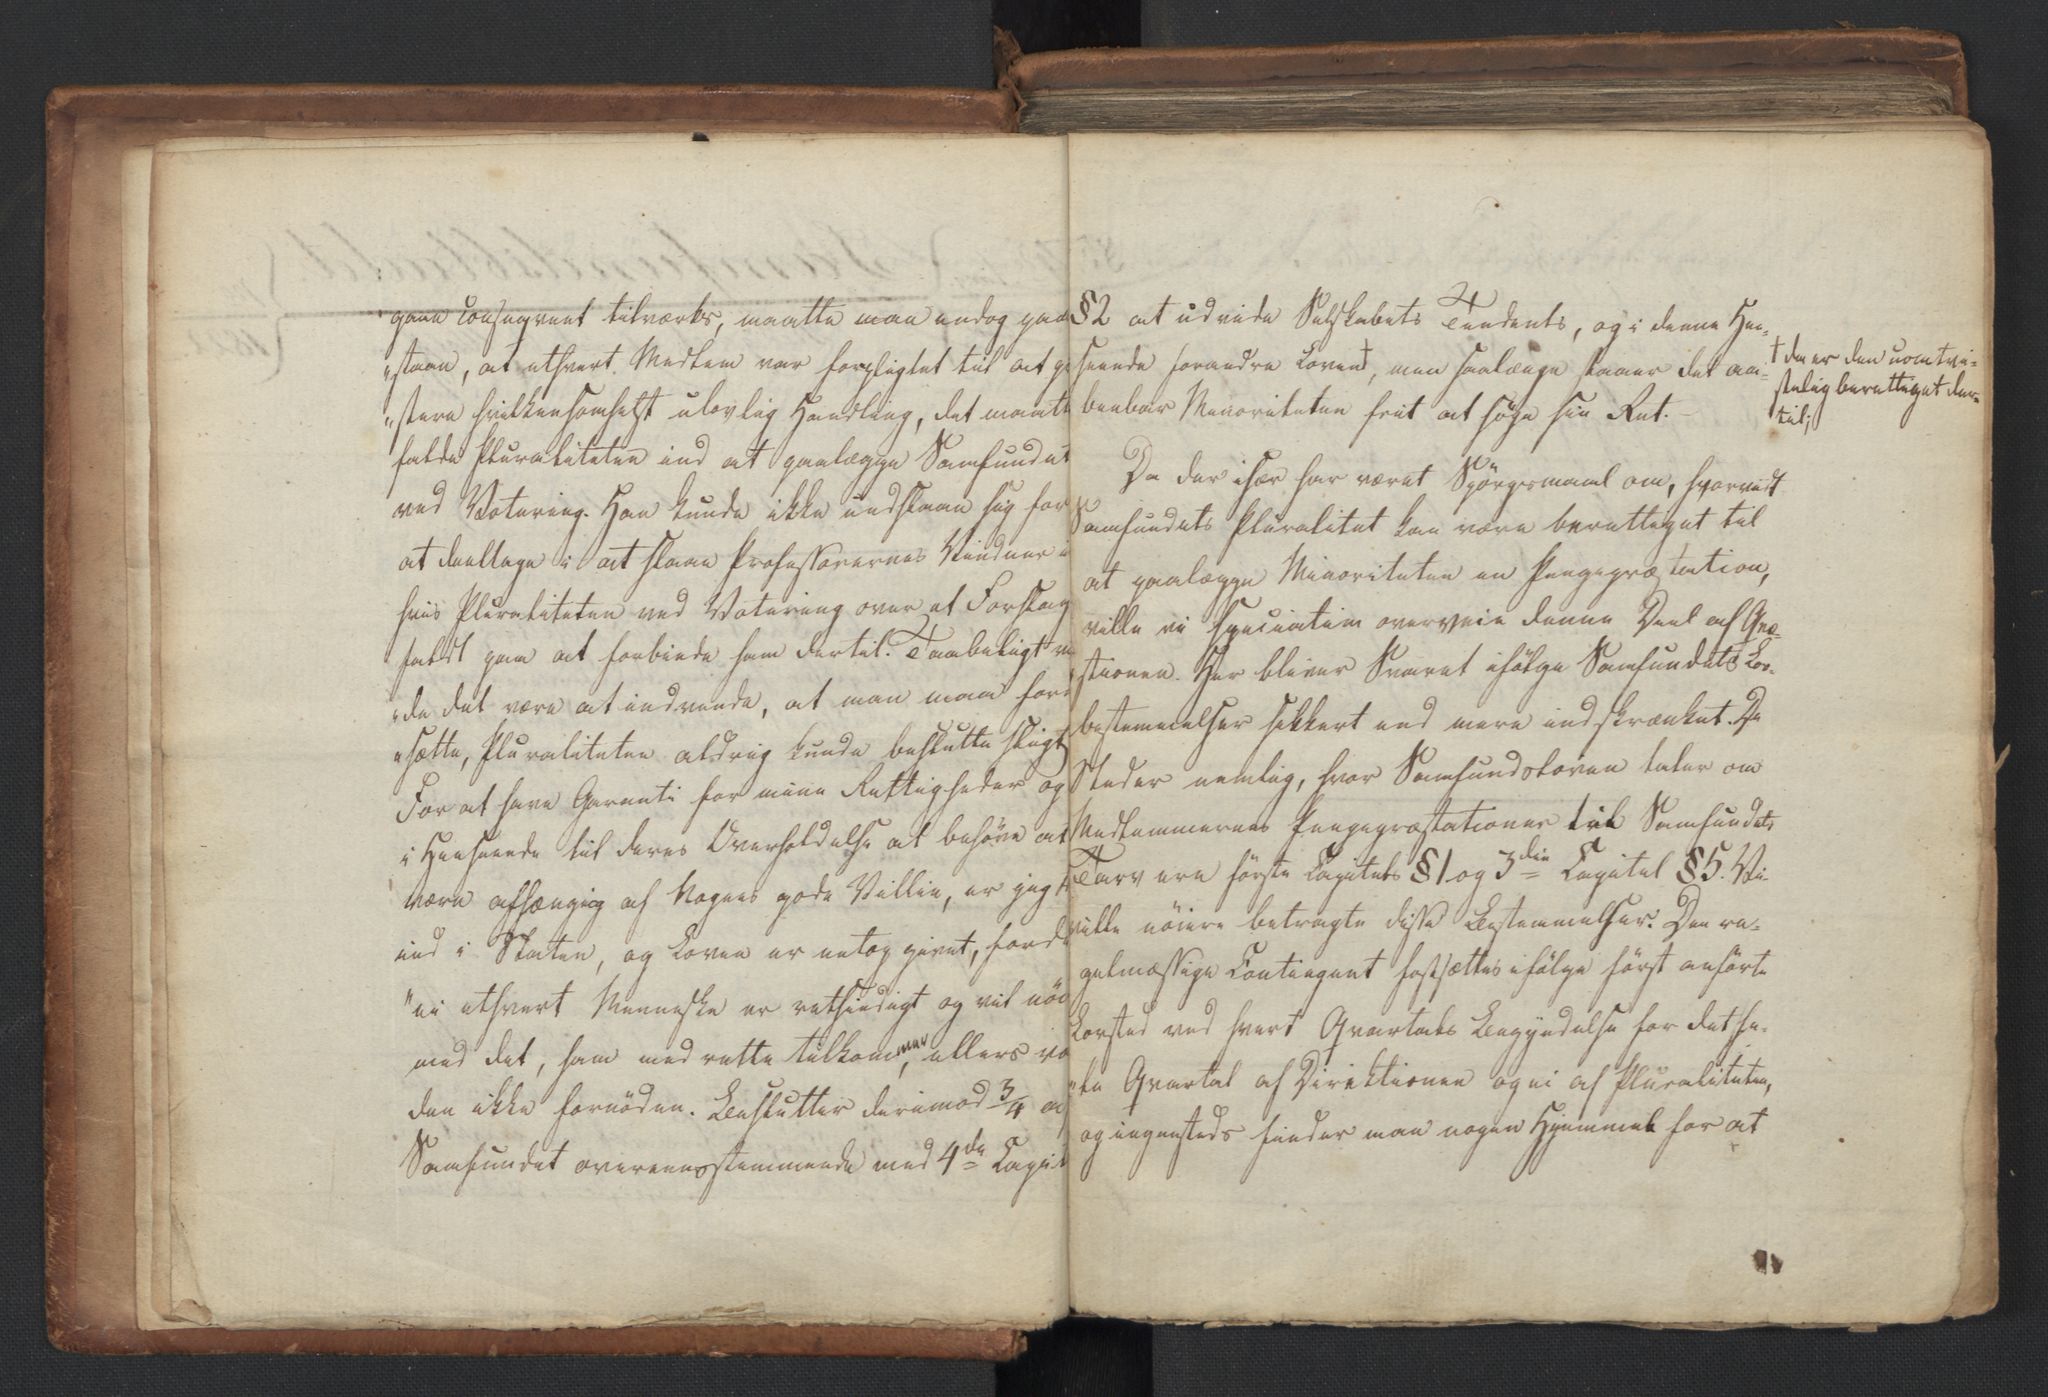 gaae conseqvent tilværks, maatte man endog paa-
"staae, at ethvert Medlem var forpligtet til at
"stere hvilkensomhelst ulovlig Handling, det maatte
falde Pluraliteten ind at paalægge Samfundet
ved Votering. Han kunde ikke undslaae sig for
at deeltage i at slaae Professorernes Vinduer i
hvis Pluraliteten ved Votering over et Forslag
faldt paa at forbinde ham dertil. Taabeligt
"de det være at indvende, at man maa
"sætte, Pluraliteten aldrig kunde beslutte sligt
For at have Garanti for mine Rettigheder og
i Henseende til deres Overholdelse at behöve at
være afhængig af Nogens gode Villie, er jeg
ind i Staten, og Loven er netop givet, fordi
"ei ethvert Menneske er retsindigt og vil
med det, ham med rette tilkommer, ellers
den ikke fornöden. Beslutter derimod 3/4
Samfundet overeensstemmende med 4de
§2 at udvide Selskabets Tendents, og i denne Hen-
seende forandre Loven†, men saalænge staaer det aa-
benbar Minoriteten frit at söge sin Ret.
† da er den uomtvi-
stelig berettiget der-
til;
Da der især har været Spörgsmaal om, hvorvidt
Samfundets Pluralitet kan være berettiget til
at paalægge Minoriteten en Pengepræstation,
ville vi speciatim overveie denne Deel af Qvæ-
stionen. Her bliver Svaret ifölge Samfundets Lov-
bestemmelser sikkert end mere indskrænket. De
Steder nemlig, hvor Samfundsloven taler om
Medlemmernes Pengepræstationer til Samfundets
Tarv ere förste Capitels §1 og 3die Capitel §5. Vi
ville nöiere betragte disse Bestemmelser. Den re-
gelmæssige Contingent fastsættes ifölge först anförte
Lovsted ved hvert Qvartals Begyndelse for det he-
"le Qvartal af Direktionen og ei af Pluraliteten,
og ingensteds finder man nogen Hjemmel for at